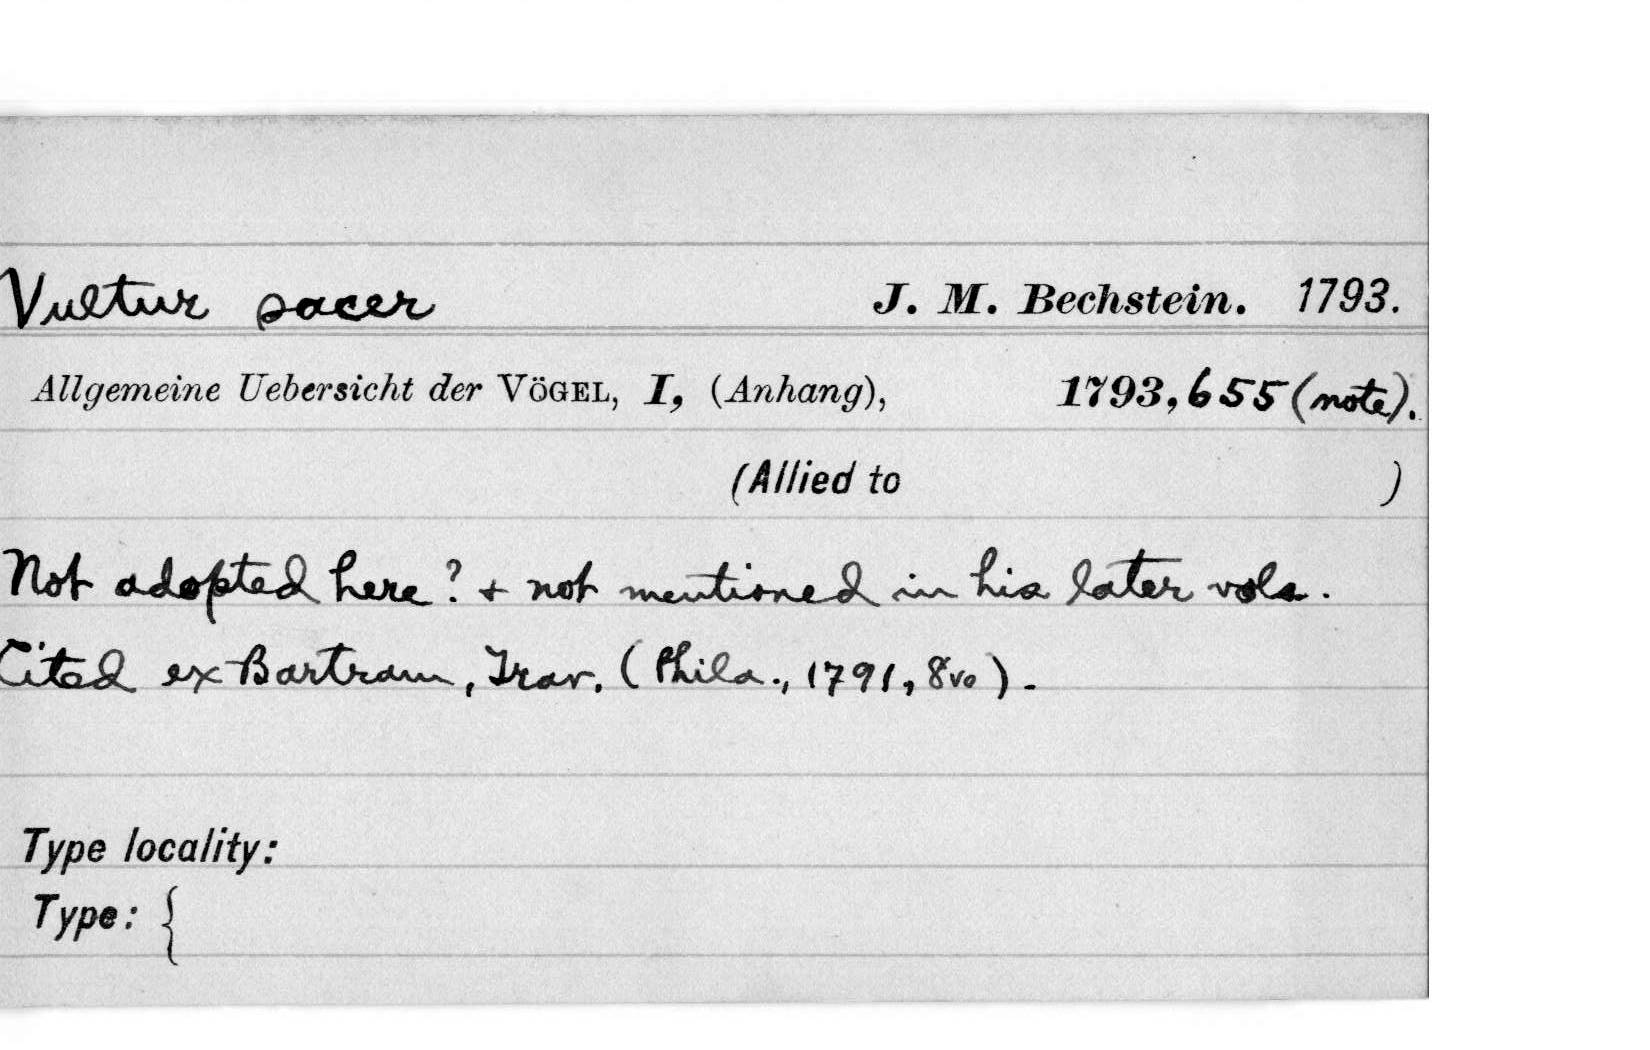 Vultur sacer J. M. Bechstein. 1793.
Allgemeine Uebersicht der VÖGEL, I, (Anhang), 1793, 655 (note).
(Allied to )
Not adopted here? + not mentioned in his later vols.
Cited ex Bartram, Trav. (Phila., 1791, 8vo).
Type locality:
Type: {